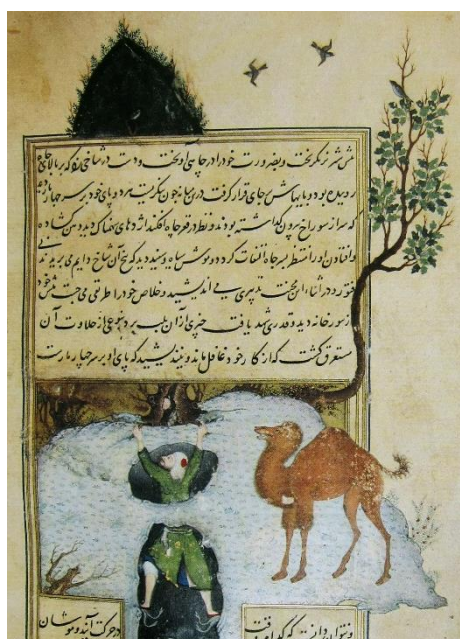 شتر بگریخت و بضرورت خود را در چاهی آویخت و دست در شاخی زد که بر بالای چاه
روییده بود و پایهاش جای قرار گرفت در این میانه چون بنگریست هر دو پای خود بر سر چهار مار
که سر از سوراخ بیرون گذاشته بودند و نظر در قعر چاه افکند اژدهای سهمناک دید دهن گشاده
و افتادن او را منتظر بسر چاه التفات کرد دو موش سیاه و سپید دید که بیخ آن شاخ دایم می بریدند بی
فتور و در اثناء این محنت تدبیری می اندیشید و خلاص خود را طریقی می جست پیش خود
زنبور خانه دید و قدری شهد یافت چیزی از آن بلب برد نوعی از حلاوت آن
مستغرق گشت که از کار خود غافل ماند و نیندیشید که پای او بر سر چهار مارست
در حرکت آیند و موشان